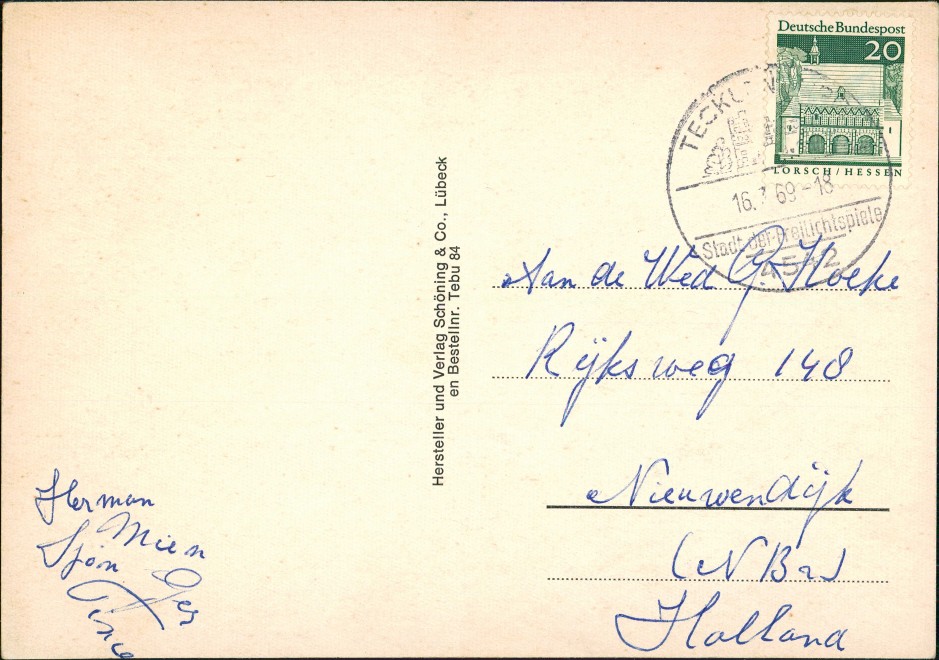 Deutsche Bundespost
20
LORSCH/HESSEN
16. 69-18
Stadt der Freilichtspiele
4542
Hersteller und Verlag Schöning & Co., Lübeck
en Bestellnr. Tebu 84
Aan de Wed G. Hoeke
Rijksweg 148
Nieuwendijk
(N Br)
Holland
Herman
Mien
Sjon
Ger
Tinie